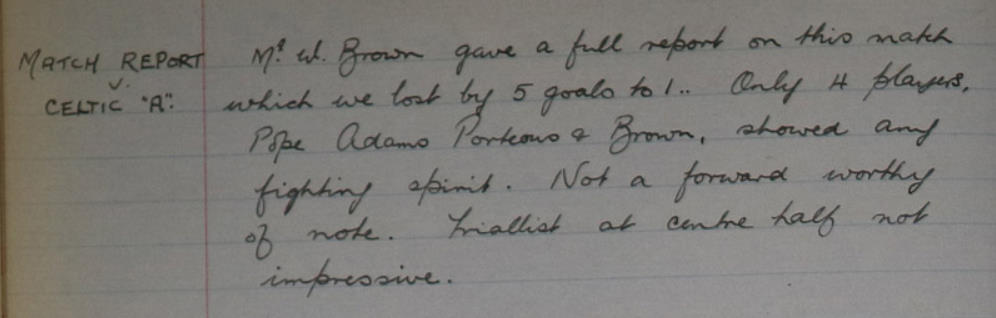 MATCH REPORT
V.
CELTIC "A".
Mr. W. Brown gave a full report on this match
which we lost by 5 goals to 1.. Only 4 players,
Pope Adams Porteous & Brown, showed any
fighting spirit. Not a forward worthy
of note. Triallist at centre half not
impressive.